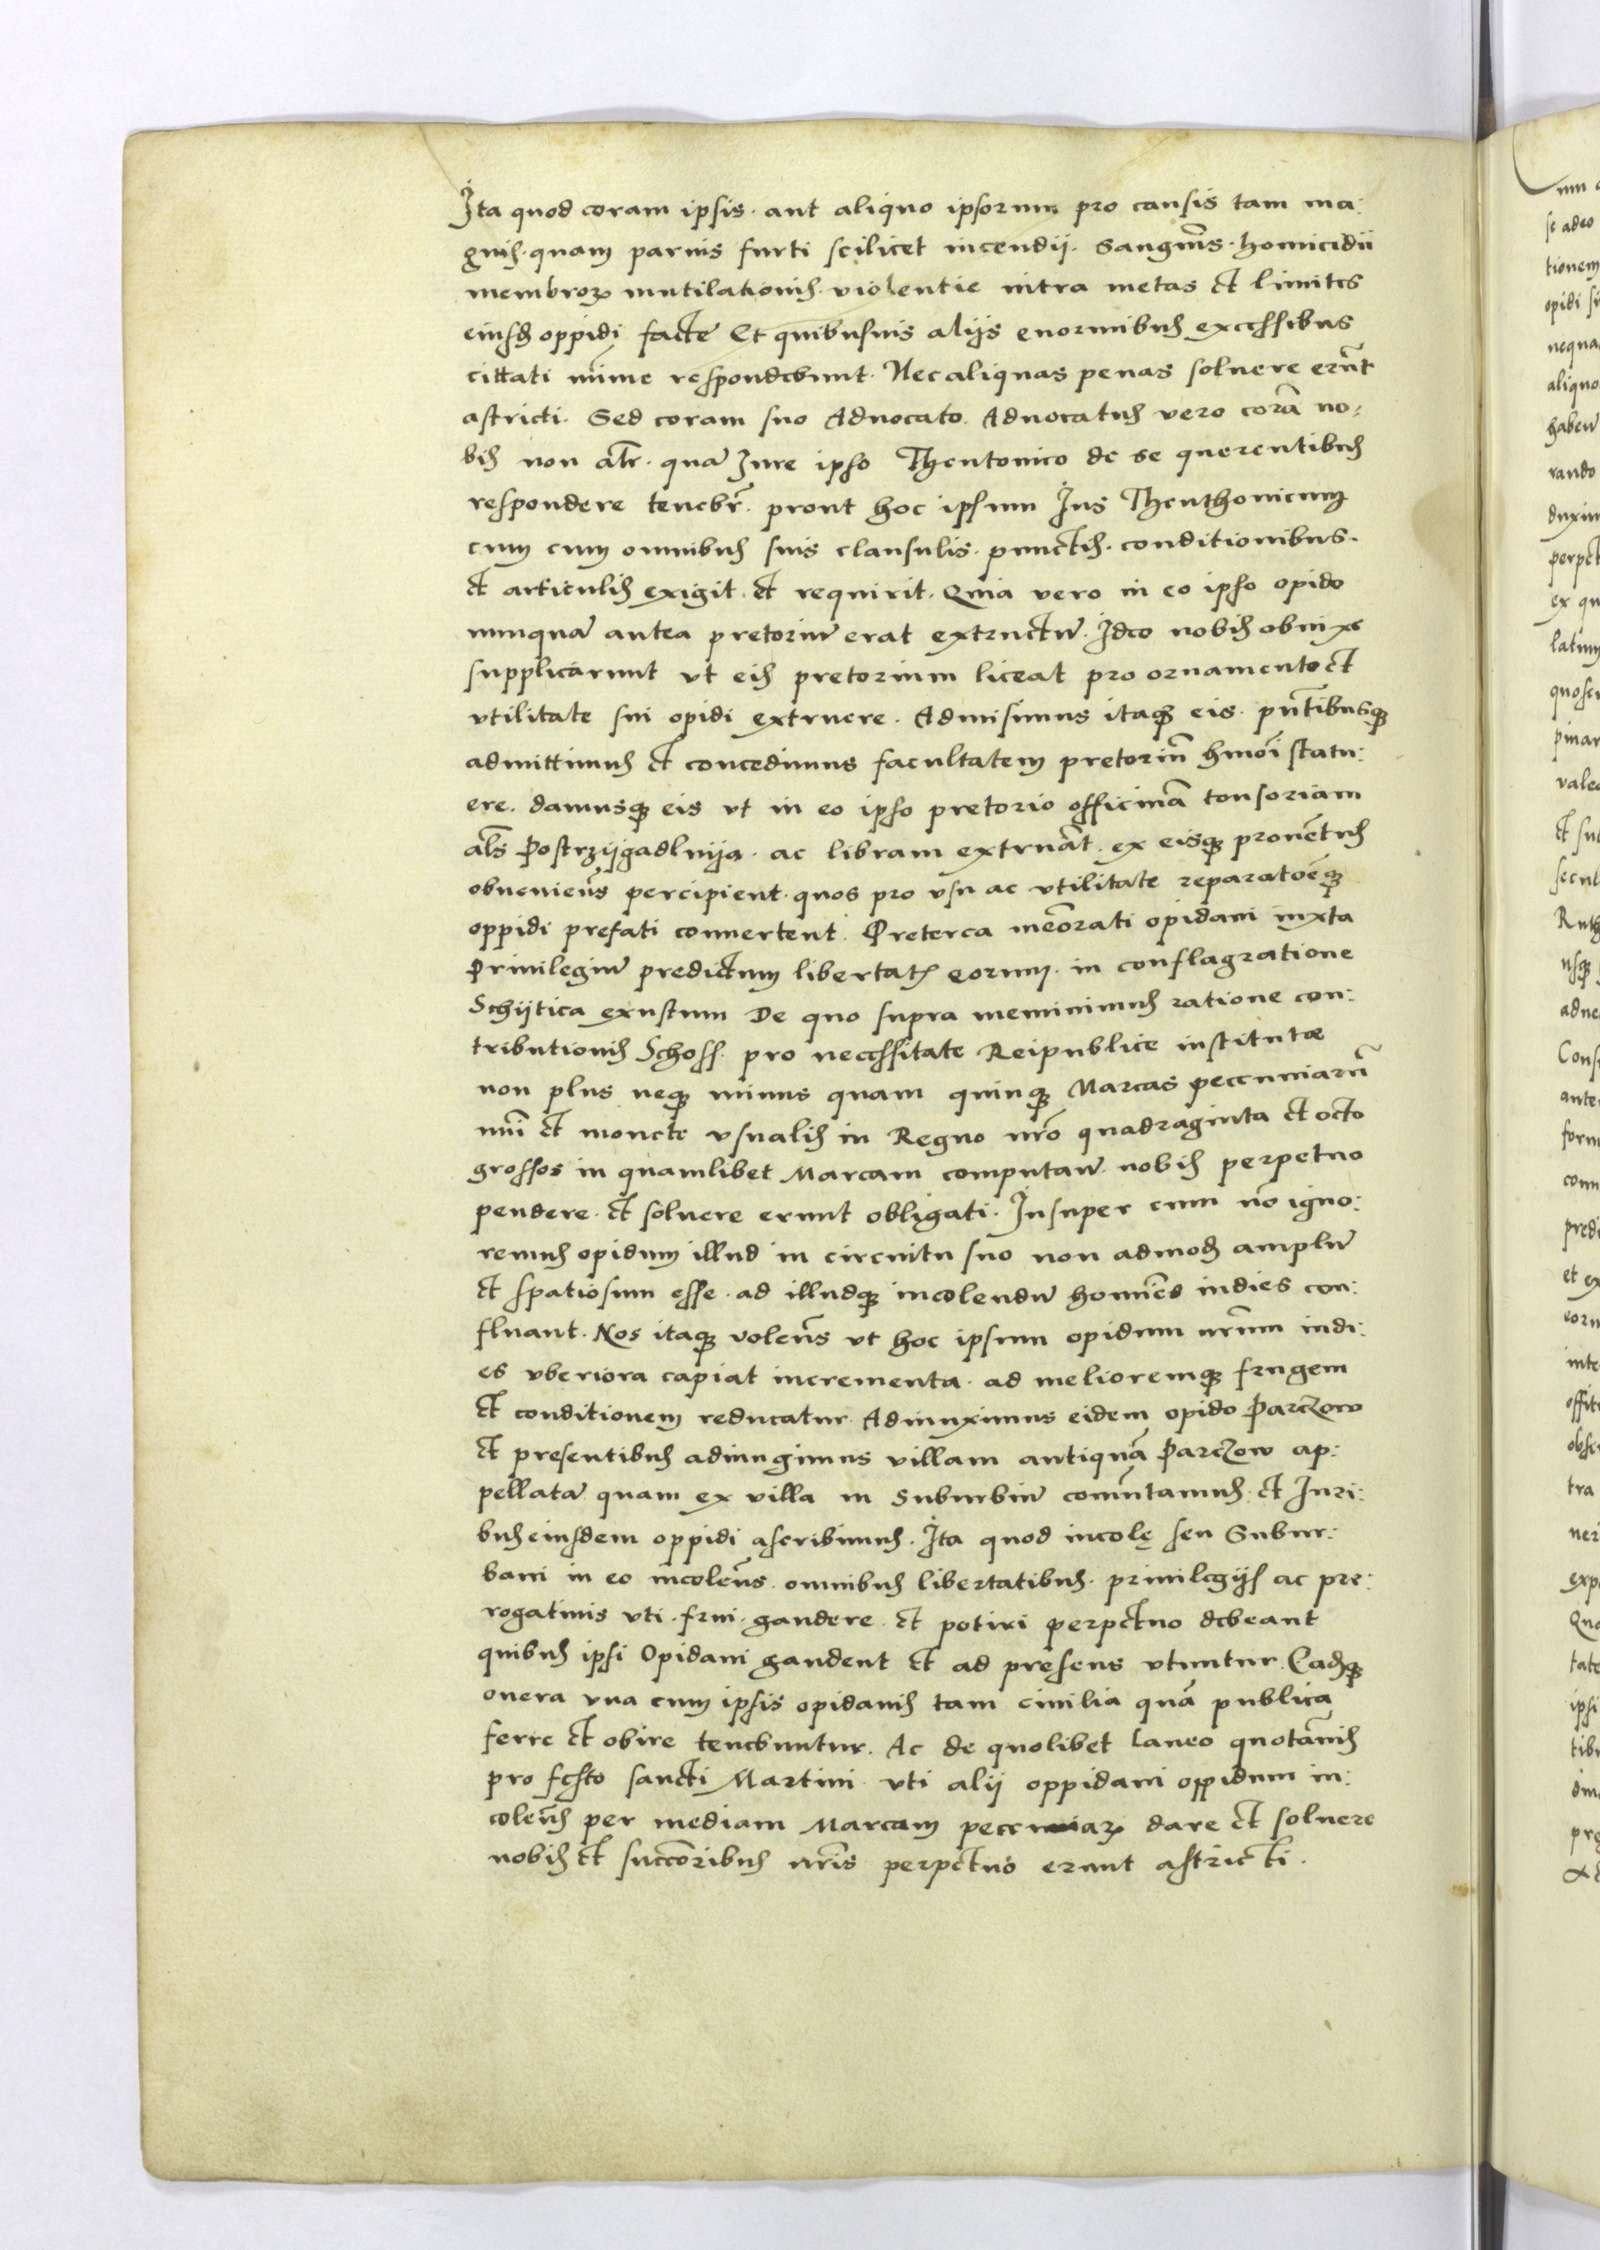 Ita quod coram ipsis. aut aliquo ipsorum pro causis tam ma:
gnis. quam paruis furti scilicet incendij. sanguis. homicidii
membroꝝ mutilationis. violentie intra metas et limites
eiusd oppidi facte Et quibusuis alijs enormibus excessibus
cittati mīme respondebunt. Nec aliquas penas soluere erūt
astricti. Sed coram suo Aduocato. Aduocatus vero corā no:
bis non alr. quā Iure ipso Theutonico de se querentibus
respondere tenebr̄. prout hoc ipsum Ius Theuthonicum
cum cum omnibus suis clausulis. punctis. conditionibus.
et articulis exigit. et requirit. Quia vero in eo ipso opido
nunquā antea pretoriū erat extructū. Ideo nobis obnixe
supplicarunt vt eis pretorium liceat pro ornamento et
vtilitate sui opidi extruere. Admisimus itaqꝫ eis. pn̄tibusqꝫ
admittimus et concedimus facultatem pretoriū hmōi statu:
ere. damusqꝫ eis vt in eo ipso pretorio officinā tonsoriam
al̄s Postrzijgadlnija. ac libram extruāt. ex eisqꝫ prouētus
obuenien̄s percipient. quos pro vsu ac vtilitate reparatōeqꝫ
oppidi prefati conuertent. Preterea memōrati opidani iuxta
Priuilegiū predictum libertatꝭ eorum. in conflagratione
Schijtica exustum De quo supra meminimus ratione con:
tributionis Schoss. pro necessitate Reipublice institutæ
non plus neqꝫ minus quam quinqꝫ Marcas pecuniarū
mūi et monete vsualis in Regno nr̄o quadraginta et octo
grossos in quamlibet Marcam computan̄ nobis perpetuo
pendere. et soluere erunt obligati. Insuper cum nō igno:
remus opidum illud in circuitu suo non admod amplū
et spatiosum esse. ad illudqꝫ incolendū homīes indies con:
fluant. Nos itaqꝫ volen̄s vt hoc ipsum opidum nr̄um indi:
es vberiora capiat incrementa. ad melioremqꝫ frugem
et conditionem reducatur. Adiunximus eidem opido Parczow
et presentibus adiungimus villam antiquā Parczow ap:
pellatā quam ex villa in suburbiū com̄utamus. et Iuri:
bus eiusdem oppidi ascribimus. Ita quod incolę seu Subur:
bani in eo incolen̄s. omnibus libertatibus. priuilegijs ac pre:
rogatiuis vti. frui. gaudere. et potiri perpetuo debeant
quibus ipsi Opidani gaudent et ad presens vtuntur. Eadqꝫ
onera vna cum ipsis opidanis tam ciuilia quā publica
ferre et obire tenebuntur. Ac de quolibet laneo quotan̄is
pro festo sancti Martini. vti alij oppidani oppidum in:
colen̄s per mediam Marcam pecuniaꝝ dare et soluere
nobis et succ̄oribus nr̄is perpetuo erunt astricti.